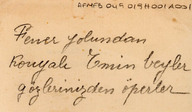 AFMFB049019H001A001
Fener yolundan
Konyalı Emin beyler
gözlerinizden öperler